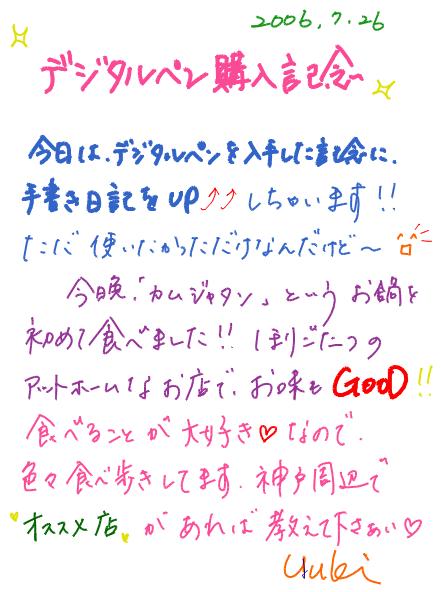 2006.7.26
デジタルペン購入記念
今日は、デジタルペンを入手した記念に、
手書き日記をUP↑↑しちゃいます!!
ただ使いたかっただけなんだけど〜
今晩、「カムジャタン」というお鍋を
初めて食べました!! ほりごたつの
アットホームなお店で、お味もGOOD!!
食べることが大好き♡なので、
色々食べ歩きしてます。神戸周辺で
オススメ店があれば教えて下さぁい♡
yuki